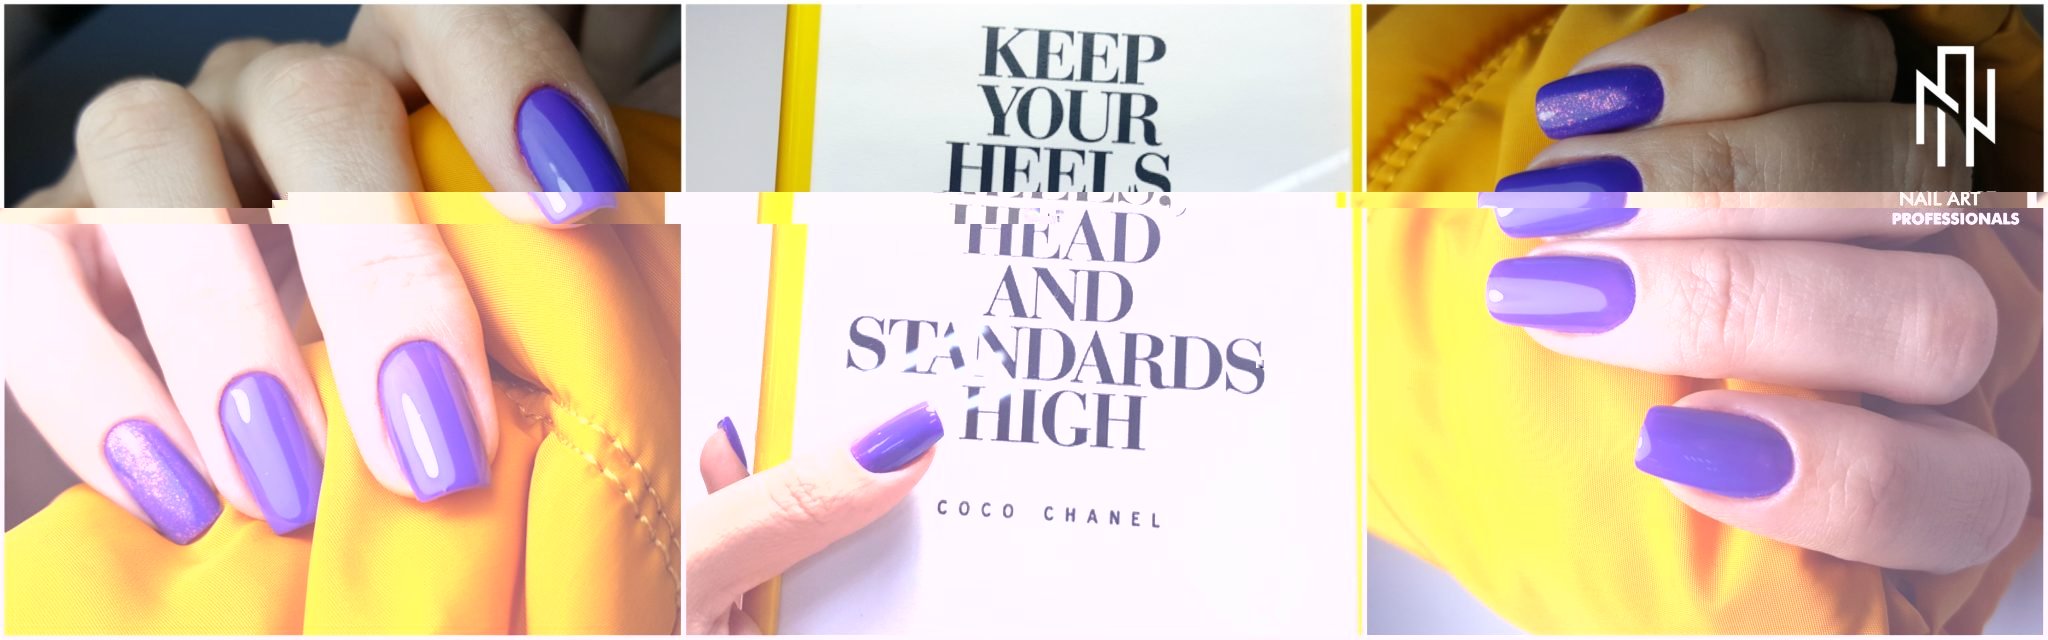 KEEP
YOUR
HEELS,
HEAD
AND
STANDARDS
HIGH
COCO CHANEL
NAIL ART
PROFESSIONALS